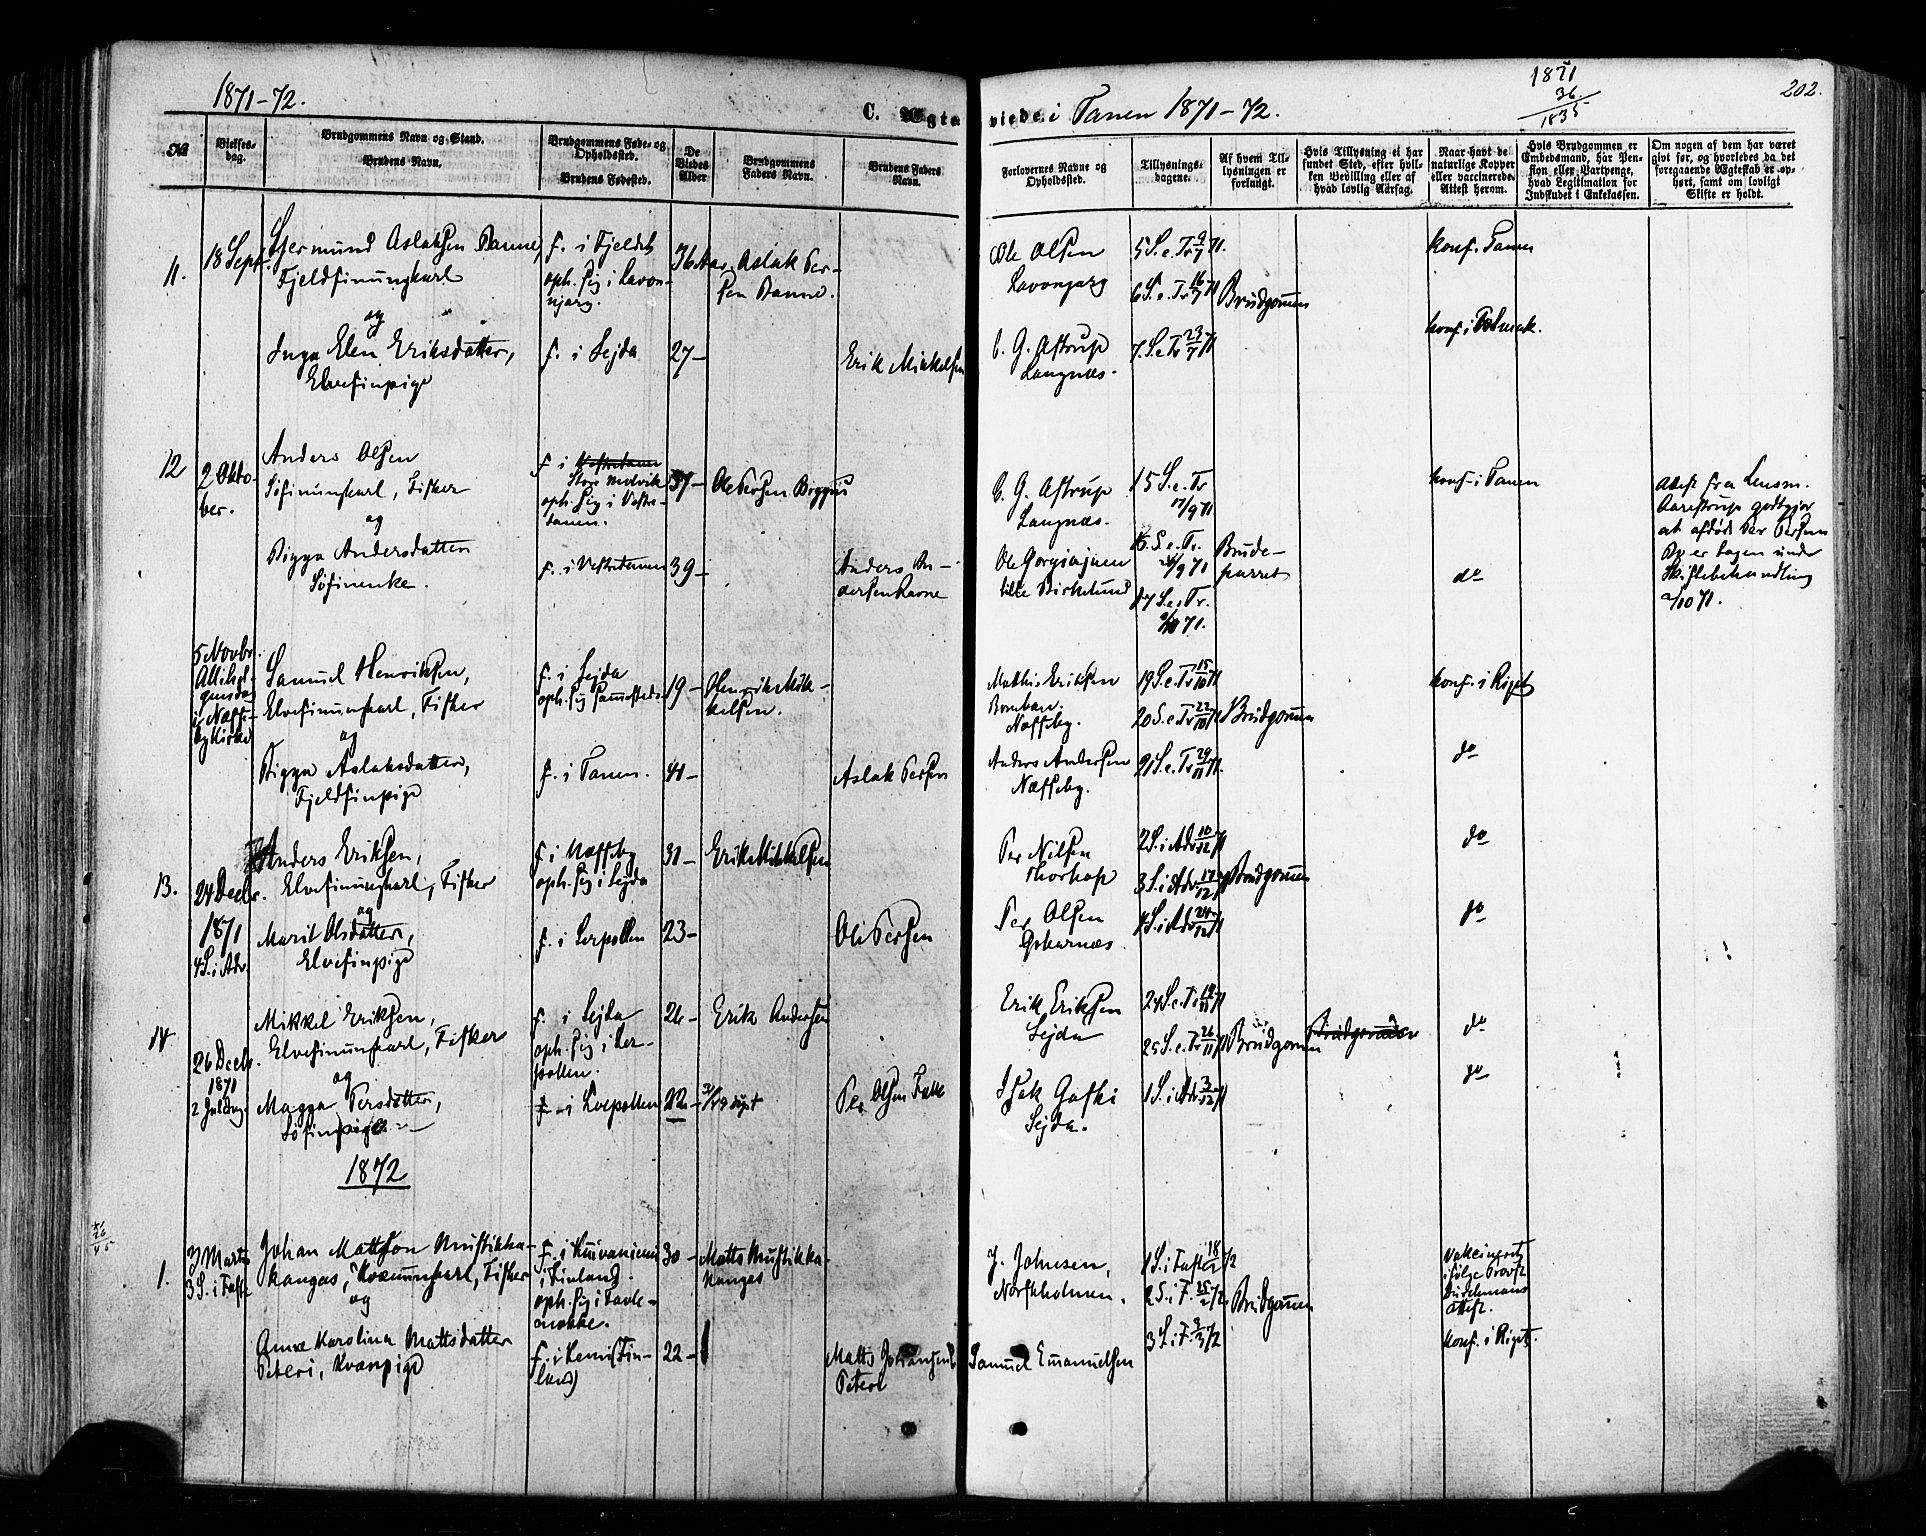 1871-72.
C. Ægte
viede i Tanen 1871-72.
1871
36.
1835
202.
No
Vielses-
dag.
Brudgommens Navn og Stand.
Brudens Navn.
Brudgommens Føde- og
Opholdssted.
Brudens Fødested.
De
Viedes
Alder
Brudgommens
Faders Navn.
Brudens Faders
Navn.
Forlovernes Navne og
Opholdssted.
Tillysnings-
dagene.
Af hvem Til-
lysningen er
forlangt.
Hvis Tillysning ei har
fundet Sted, efter hvil-
ken Bevilling eller af
hvad lovlig Aarsag.
Naar havt de
naturlige Kopper
eller vaccinerede.
Attest herom.
Hvis Brudgommen er
Embedsmand, har Pen-
sion eller Vartpenge,
hvad Legitimation for
Indskudet i Enkekassen.
Om nogen af dem har været
givt før, og hvorledes da det
foregaaende Ægteskab er op-
hørt, samt om lovligt
Skifte er holdt.
11.
18 Sept.
Gjermund Aslaksen Banne,
Fjeldfinungkarl
og
Inga Elen Eriksdatter,
Elvefinpige
f. i Fjeldet
oph. sig i Lavon-
njarg.
f. i Sejda
36 Aar
27-
Aslak Per-
sen Banne.
Erik Mikkelsen
Ole Olsen
Lavonjarg
C. G. Astrup
Langnæs.
5 S. e. Tr 9/7 71.
6 S. e. Tr 16/7 71
7 S. e Tr 23/7 71
Brudgommen
konf. Tanen
konf. i Polmak.
12
2 Okto-
ber.
Anders Olsen
Søfinungkarl, Fisker
og
Bigga Andersdatter
Søfinenke.
f. i Vestertanen
Store Molvik
oph. sig i Vestre-
tanen.
f. i Vestertanen
37-
39-
Ole Persen Biggus
Anders An-
dersen Ravne
C. G. Astrup
Langnæs.
Ole
Birkelund
15 S. e. Tr
17/9 71
16. S. e. Tr.
24/9 71
17 S. e. Tr.
1/10 71.
Brude-
parret
konf. i Tanen
do
Attest fra Lensm.
Aarestrup godtgjør
at afdøde Per Persens
Bo er tagen under
Skiftebehandling
2/10 71.
5 Novbr.
Allehel-
gensdag
i Næsse-
by Kirke
Samuel Henriksen,
Elvefinungkarl, Fisker
og
Bigga Aslaksdatter,
Fjeldfinpige
f. i Sejda
oph. sig sammesteds
f. i Tanen.
19-
41-
Henrik Mik-
kelsen.
Aslak Persen
Mathis Eriksen
Næsseby.
Anders Andersen
Næsseby.
19 S. e. Tr 15/10 71
20 S. e. Tr 22/10 71
21 S. e. Tr 29/11 71.
Brudgommen
konf. i Riget
do
13.
24 Decbr.
1871
4 S. i Adv.
Anders Eriksen,
Elvefinungkarl, Fisker
og
Marit Olsdatter,
Elvefinpige
f. i Næsseby
oph. sig i Sejda
f. i Lerpollen
31-
23-
Erik Mikkelsen
Ole Persen
Per Nilsen
Thorhop
Per Olsen
2 S. i Adv 10/12 71
3 S. i Adv 17/12 71
4 S. i Adv 24/12 71
Brudgommen
do
do
14
26 Decbr.
1871
2 Juledag
Mikkel Eriksen,
Elvefinungkarl, Fisker
og
Magga Persdatter,
Søfinpige
f. i Sejda
oph. sig i Ler-
pollen.
f. i Lerpollen
26-
22-
Erik Andersen
Per Olsen
Erik Eriksen
Sejda
Isak
Sejda.
24 S. e. Tr 19/11 71
25 S. e. Tr 26/11 71
1 S. i Adv 3/12 71
Brudgommen
Brudgommen
do
do
1872
1.
3 Marts
3 S. i Faste
Johan Mattson Mustikka-
kangas, Kvænungkarl, Fisker
og
Anna Karolina Mattsdatter
Peteri, Kvænpige
f. i Kuivaniemi
i Finland.
oph. sig i
f. i Kemi (Fin-
land)
30-
22-
Matts Mustikka-
kangas
Matts Johansen
Peteri
J. Johnsen,
Norskholmen.
Samuel Emanuelsen
1 S. i Faste 18/2 72
2 S. i F. 25/2 72
3 S. i F. 3/3 72
Brudgommen
Vakcineret
ifølge Provst
attest.
konf. i Riget.